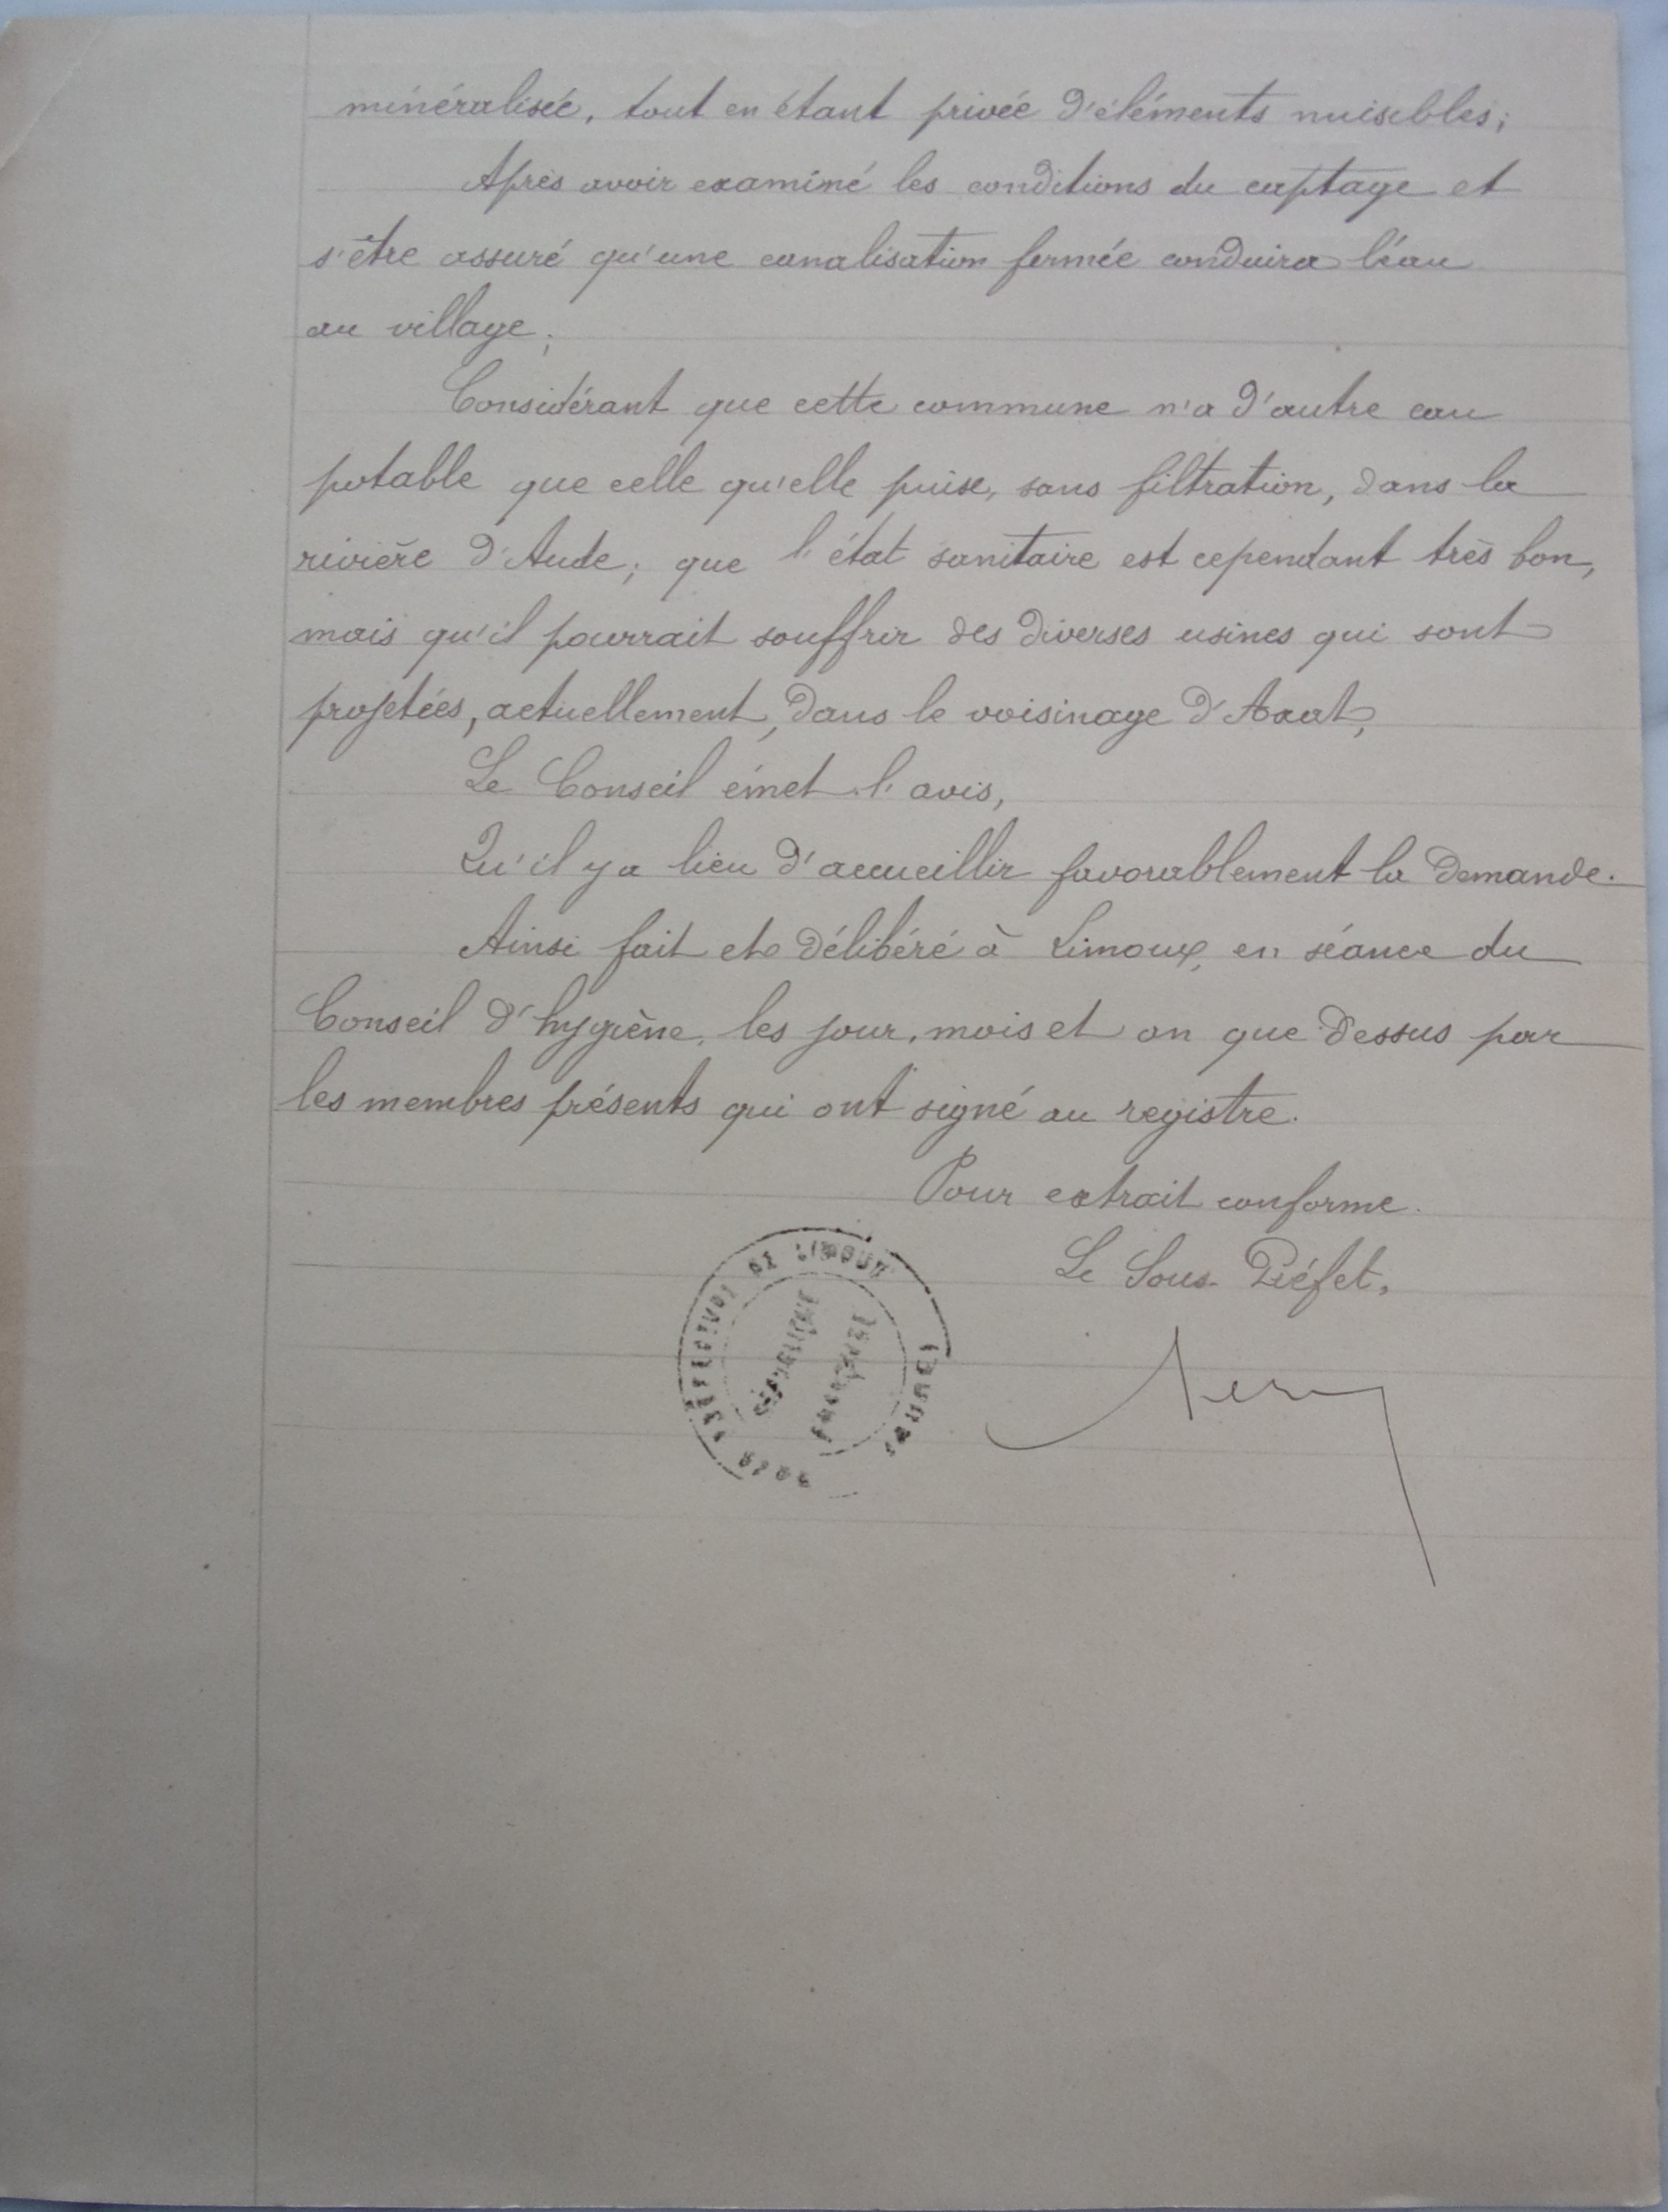 minéralisée, tout en étant privée d'éléments nuisibles;
Après avoir examiné les conditions du captage et
s'être assuré qu'une canalisation fermée conduira l'eau
au village;
Considérant que cette commune n'a d'autre eau
potable que celle qu'elle puise, sans filtration, dans la
rivière d'Aude; que l'état sanitaire est cependant très bon,
mais qu'il pourrait souffrir des diverses usines qui sont
projetées, actuellement, dans le voisinage d'Axat,
Le Conseil émet l'avis,
Qu'il y a lieu d'accueillir favorablement la demande.
Ainsi fait et délibéré à Limoux, en séance du
Conseil d'hygiène, les jour, mois et an que dessus par
les membres présents qui ont signé au registre.
Pour extrait conforme.
Le Sous-Préfet,
DE LIMOUX